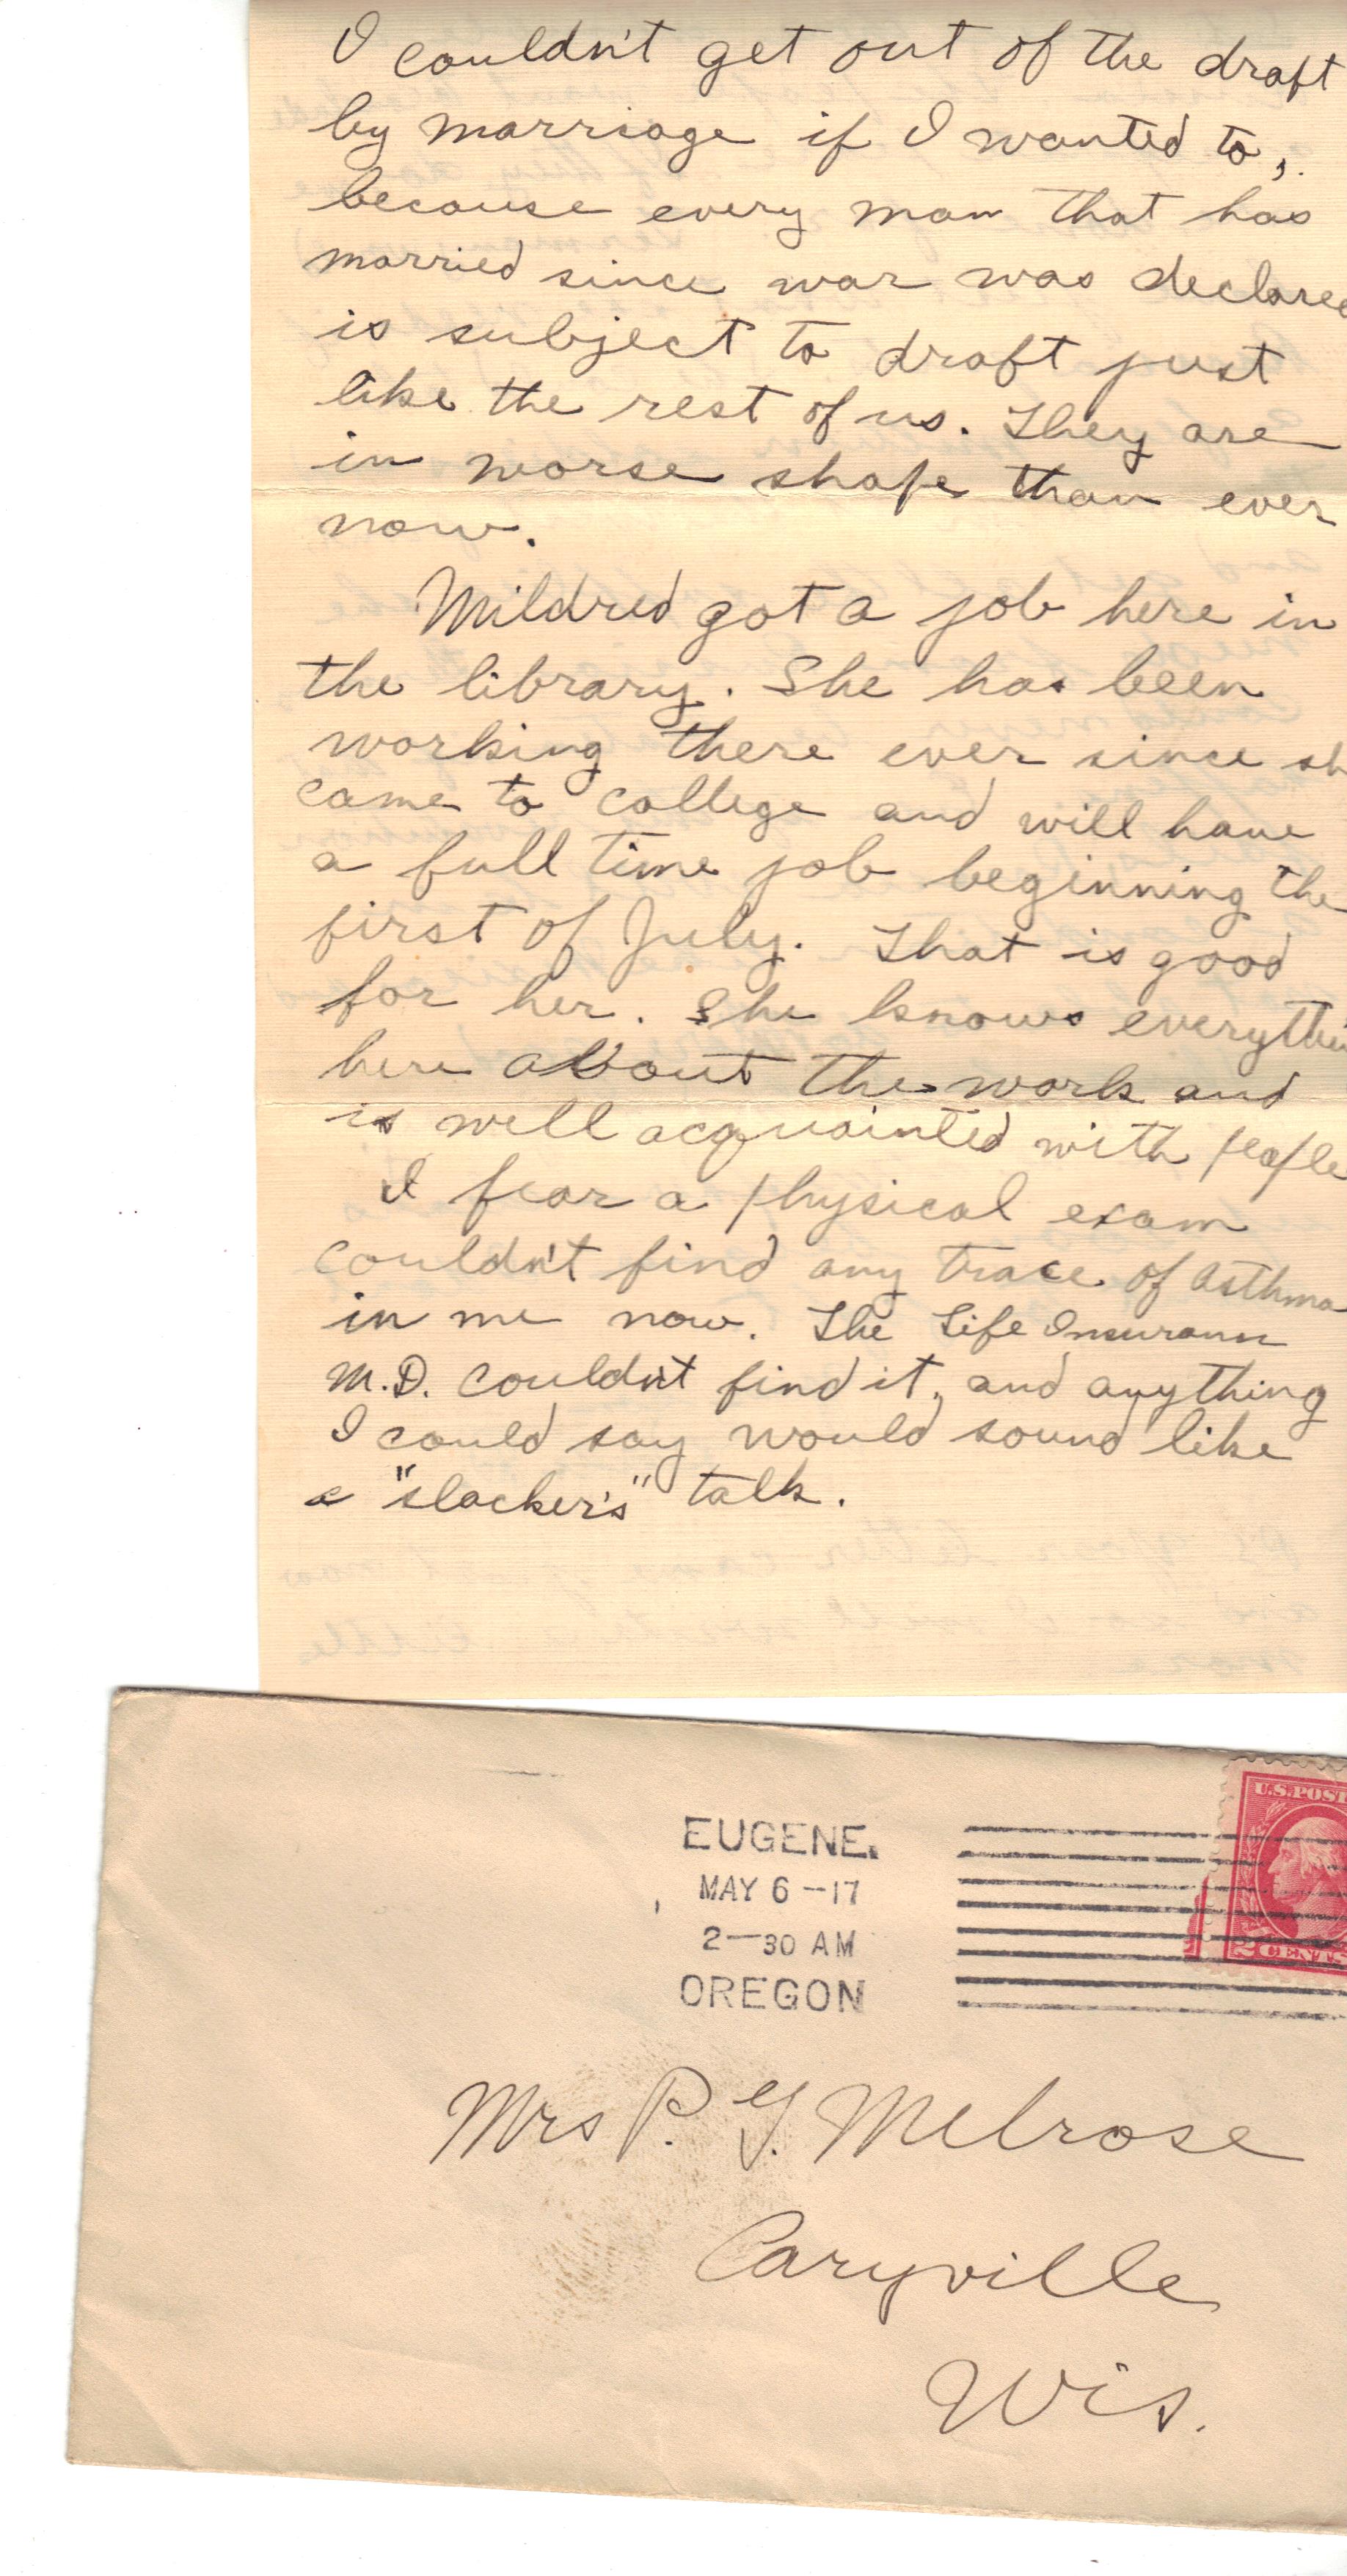 I couldn't get out of the draft
by marriage if I wanted to,
because every man that has
married since war was declared
is subject to draft just
like the rest of us. They are
in worse shape than ever
now.
Mildred got a job here in
the library. She has been
working there ever since sh
came to college and will have
a full time job beginning the
first of July. That is good
for her. She knows everythin
here about the work and
is well acquainted with people
I fear a physical exam
couldn't find any trace of asthma
in me now. The Life Insurance
M.D. couldn't find it, and anything
I could say would sound like
a "slacker's" talk.
EUGENE.
MAY 6 - 17
2-30 AM
OREGON
U.S. POST
2 CENTS
Mrs P. Y. Melrose
Caryville
Wis.